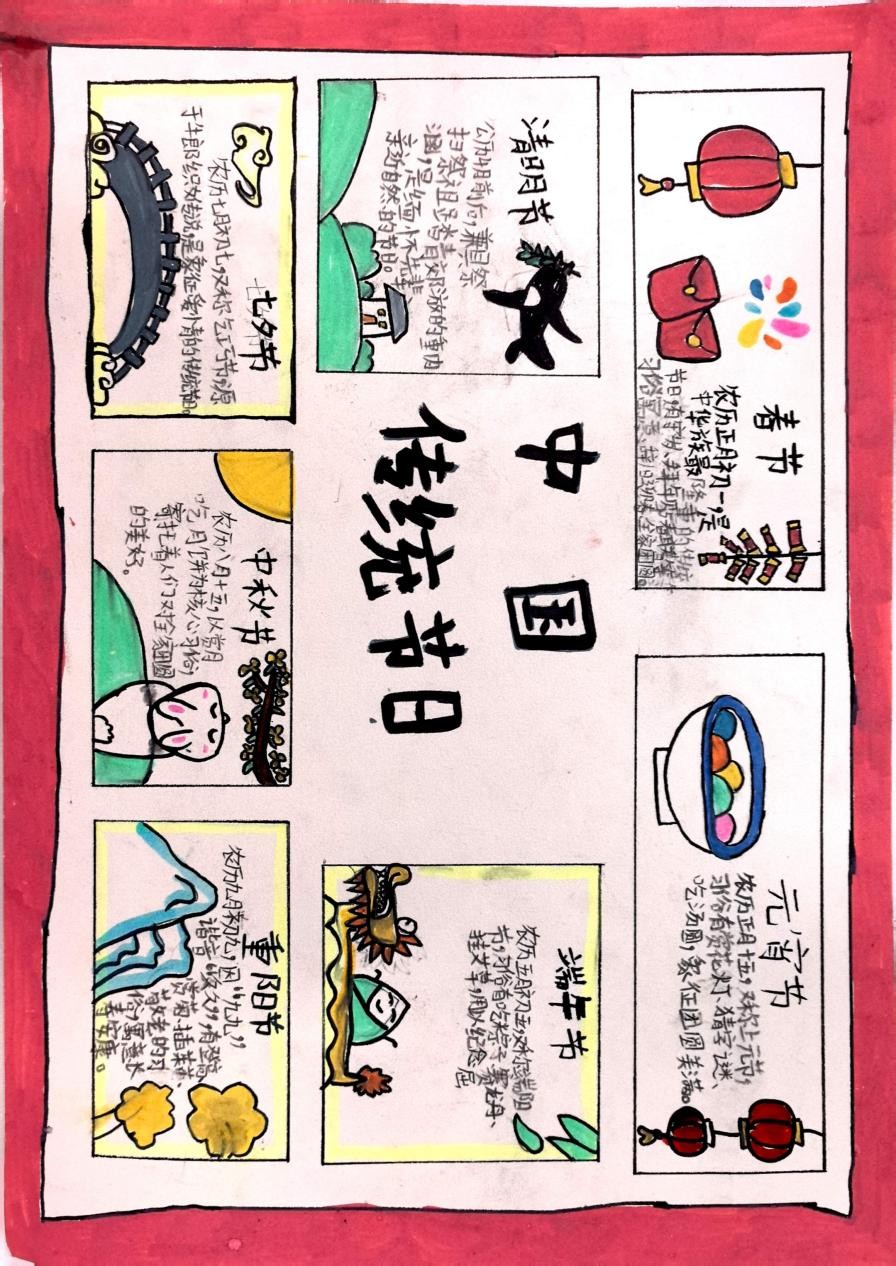 中国
传统节日
春节
农历正月初一,是
中华族最隆重的传统
元宵节
农历正月十五,又称上元节,
习俗有赏花灯、猜字谜
吃汤圆,象征团圆美满。
清明节
公历4月前后,兼具祭
扫祭祖
亲近自然的节日。
端午节
农历五月初五,又称端阳
节,习俗有吃粽子、赛龙舟、
挂艾草,用以纪念屈
七夕节
农历七月初七,又称乞巧节,源
于牛郎织女传说,是象征爱情的传统节日。
中秋节
农历八月十五,以赏月
吃月饼为核心习俗,
寄托着人们对全家团圆
的美好。
重阳节
农历九月初九,因“九九”
谐音“久久”,有登高、
赏菊、插茱萸、
敬老的习
俗,寓意长
寿安康。